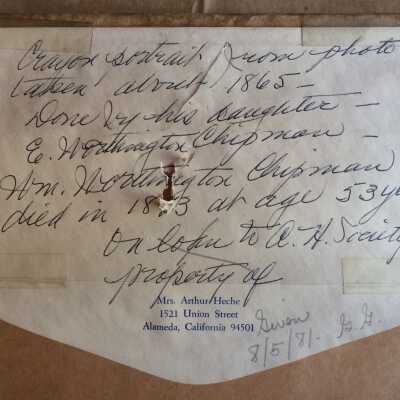 Crayon portrait from photo
taken about 1865 -
Done by his daughter -
E. Worthington Chipman -
Wm. Worthington Chipman
died in 1873 at age 53 y
On loan to A. H. Society
property of
Mrs. Arthur Heche
1521 Union Street
Alameda, California 94501
Given
8/5/81. G. G.